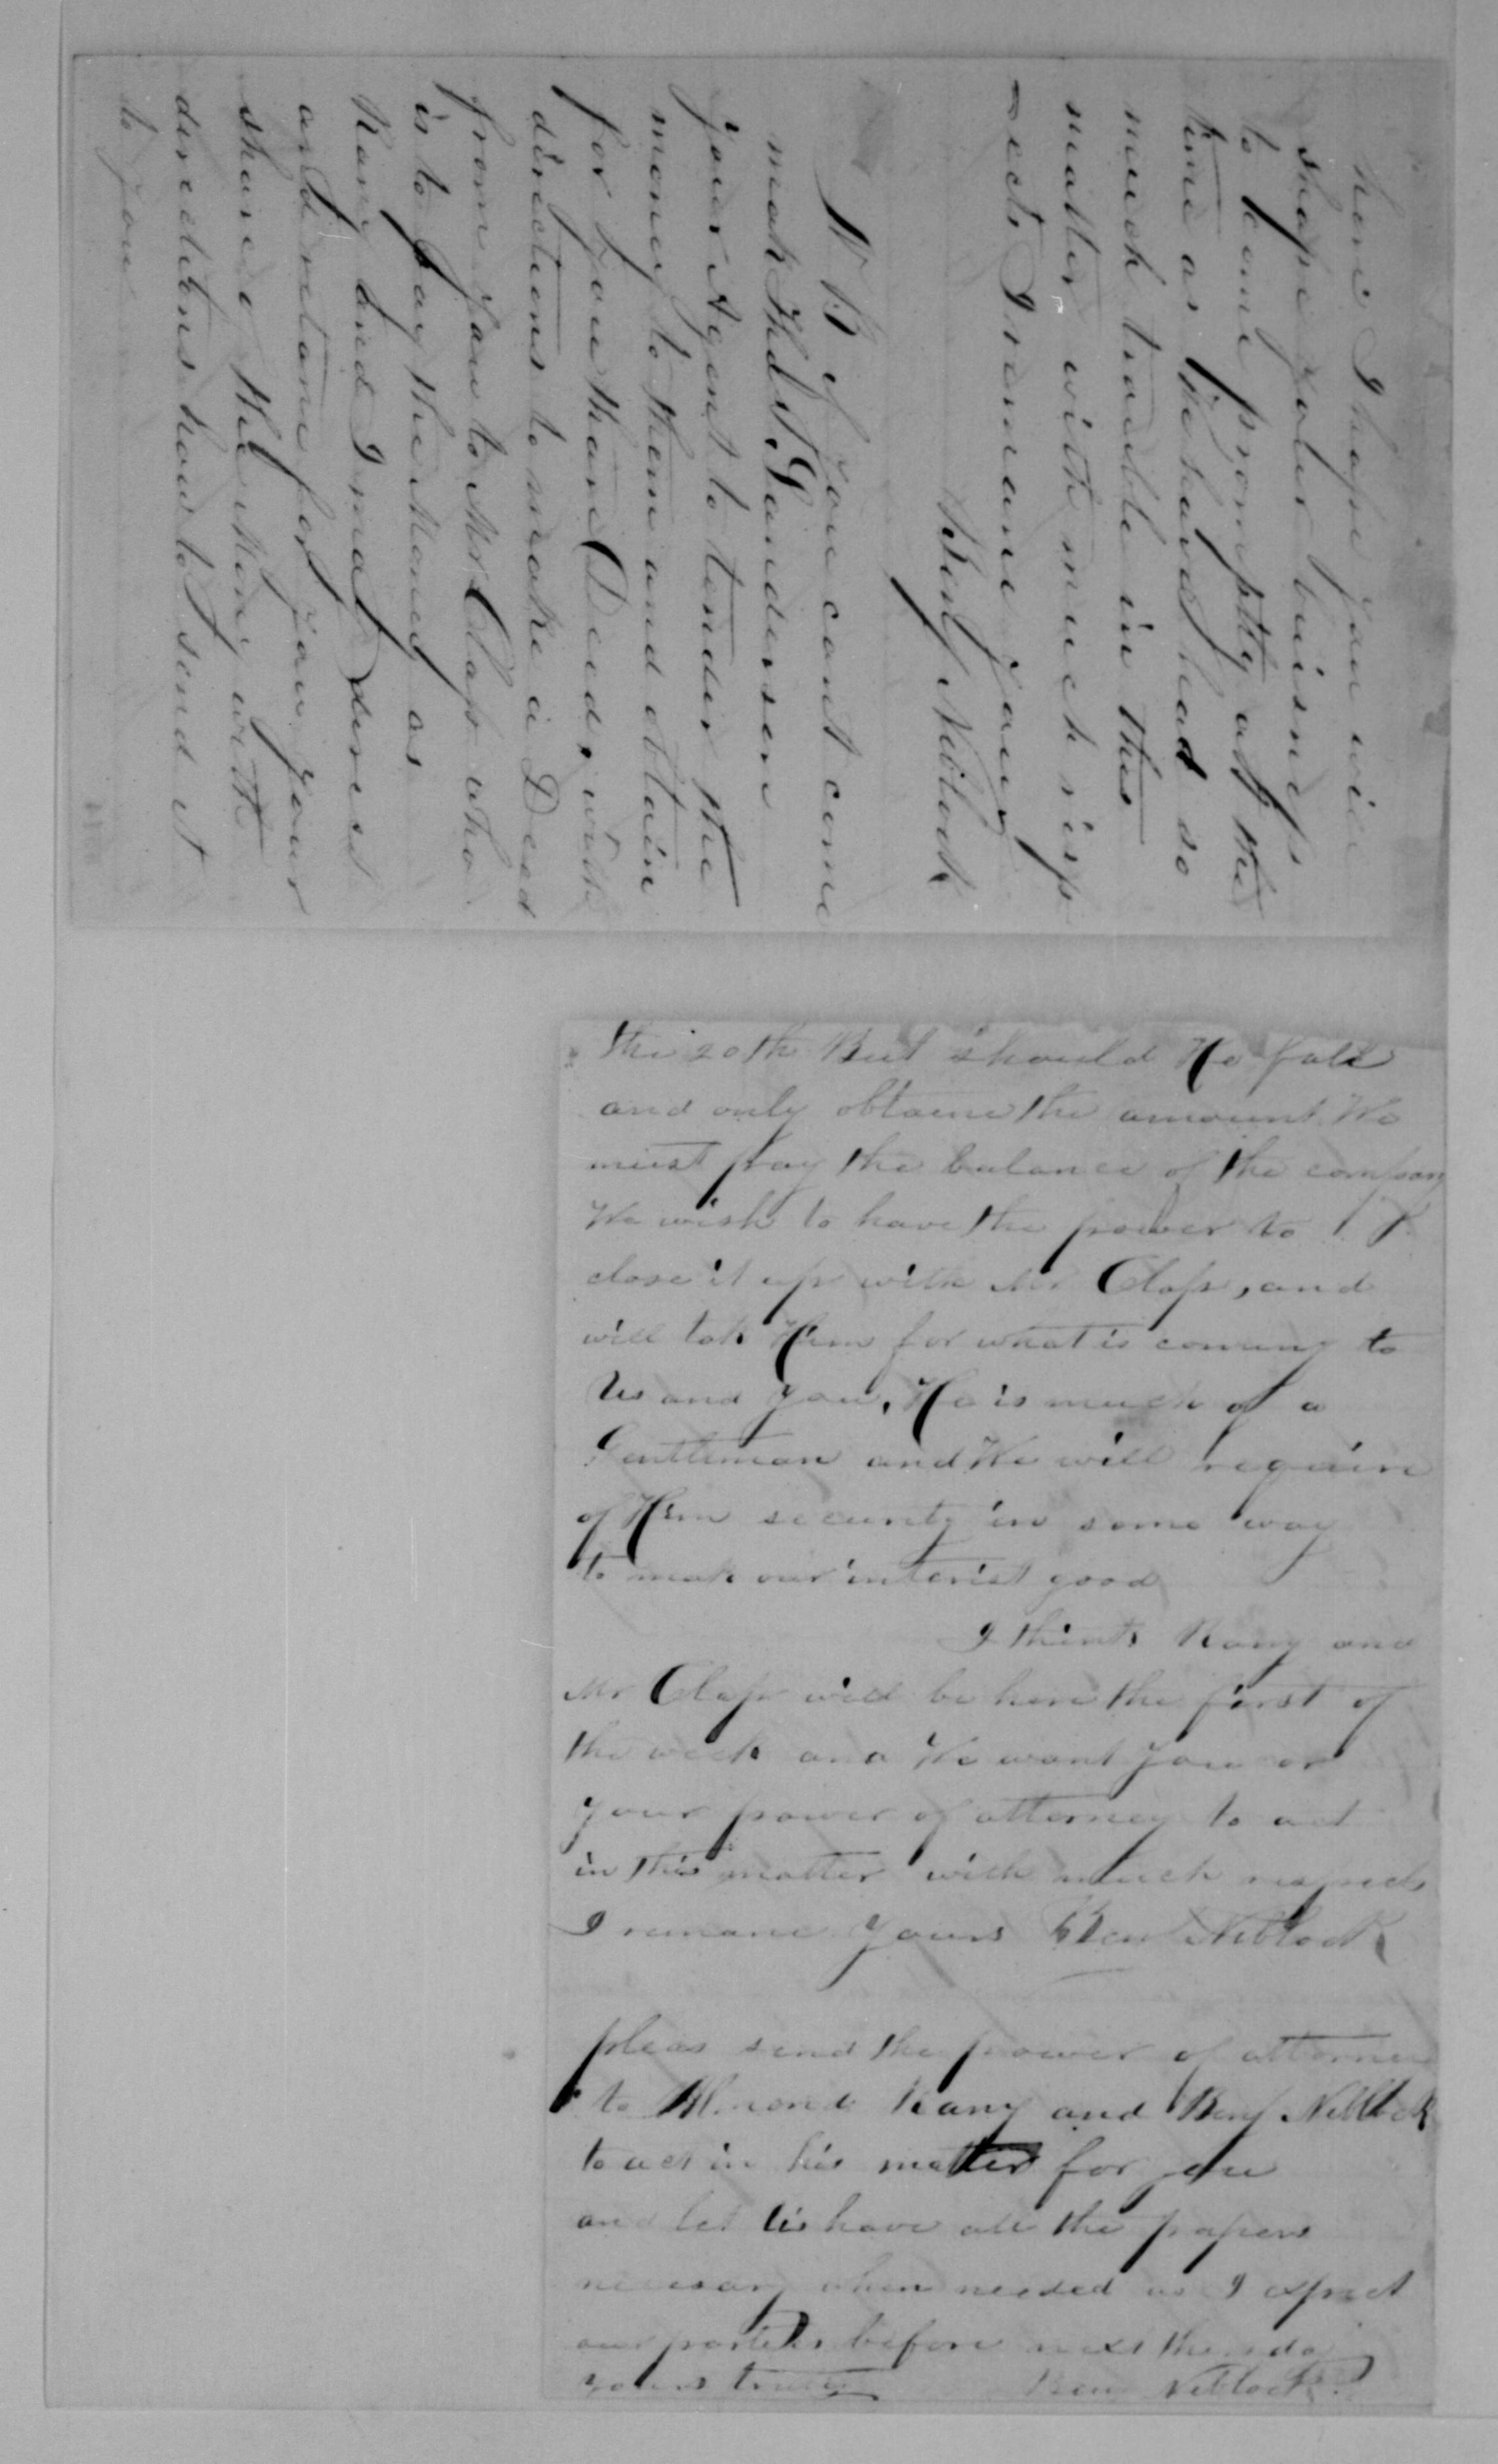 here I hope you will
shape your buisness
to come promptly at the
time as We have had so
much trouble in this
matter with much resp
ects I remane yours
Benj Niblock
N B if you cant come
make Thd S. Sandersen
your Agent to tender the
money to them and obtain
for you thare Deed, with
directions to make a Deed
from you to Mr Clap who
is to pay the Money as
Rany and I may direct
and retane for you your
share of the Mony with
directions how to send it
to you
the 20th But should He fale
and only obtaine the amount We
must pay the balance of the company
We wish to have the power to
close it up with Mr Clap, and
will tak Him for what is coming to
Us and you, He is much of a
Gentleman and We will require
of Him security in some way
to mak our interist good
I think Rany and
Mr Clap will be here the first of
the week and We want you or
your power of attorney to act
in this matter with much respects
I remane yours Ben Niblock
pleas send the power of attorney
to Almond Rany and Benj Niblock
to act in his matter for you
and let Us have all the papers
necesary when needed as I expect
our parties before next
yours truly Ben Niblock